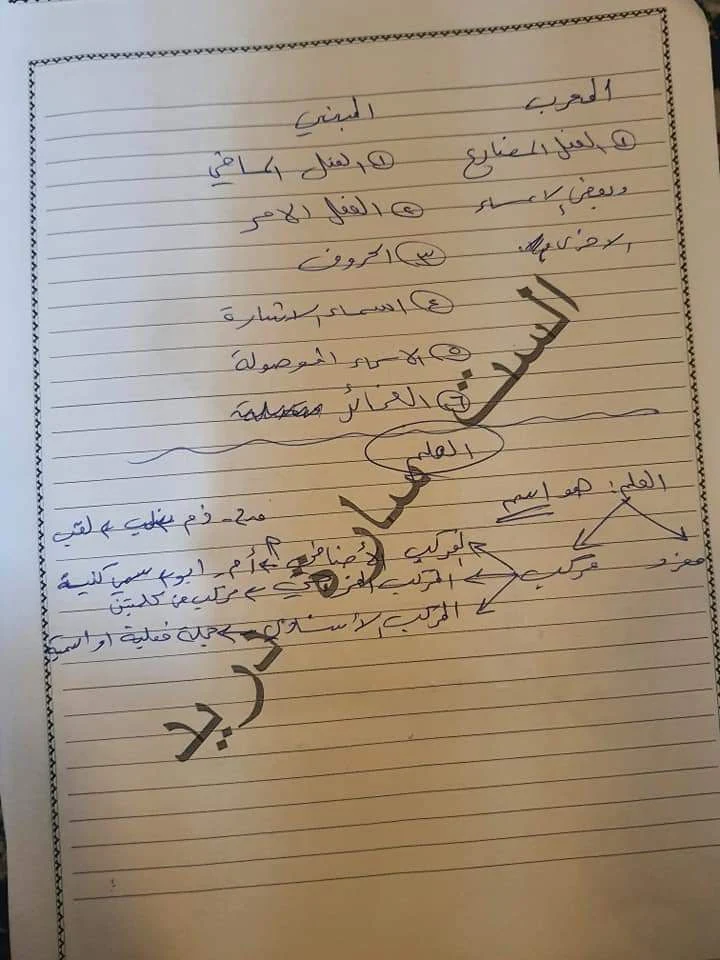 المعرب المبني
① الفعل المضارع ① الفعل الماضي
وبعض الاسماء ② الفعل الامر
الاخرى ③ الحروف
④ اسماء الاشارة
⑤ الاسماء الموصولة
⑥ الضمائر
العلم
العلم: هو اسم
مدح - ذم ← لقب
مفرد مركب
المركب الأضافي ← أم، ابو ← سمي كنية
المركب المزجي ← مركب من كلمتين
المركب الأسنادي ← جملة فعلية او اسمية
الست سارة دريد